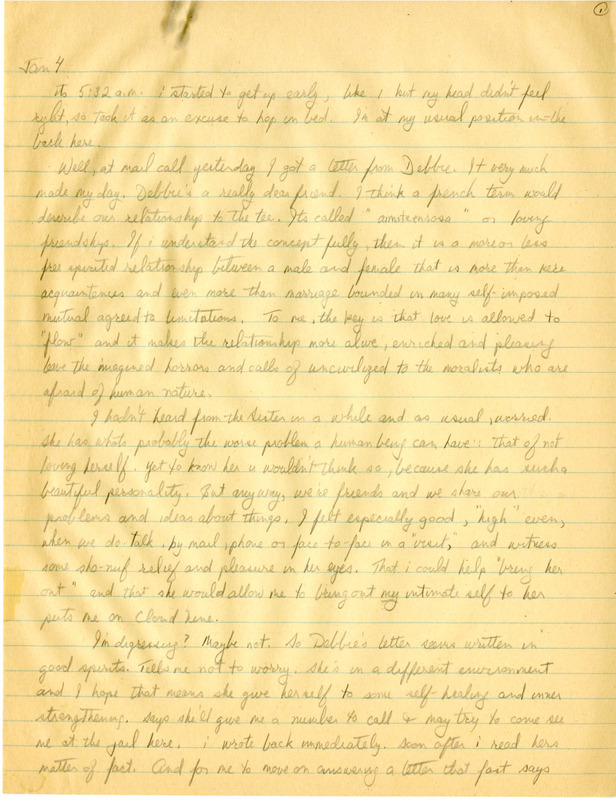 1
Jan 4
its 5:32 a.m. i started to get up early, like 1 but my head didn't feel
right, so took it as an excuse to hop in bed. I'm at my usual position in the
back here.
Well, at mail call yesterday I got a letter from Debbie. It very much
made my day. Debbie's a really dear friend. I think a french term would
describe our relationship to the tee. Its called " " or loving
friendships. If i understand the concept fully, then it is a more or less
free spirited relationship between a male and female that is more than mere
acquaintences and even more than marriage bounded in many self-imposed
mutual agreed to limitations. To me, the key is that love is allowed to
"flow" and it makes the relationship more alive, enriched and pleasing
leave the imagined horrors and calls of uncivilized to the moralists who are
afraid of human nature.
I hadn't heard from the Sister in a while and as usual, worried.
She has whats probably the worse problem a human being can have: that of not
loving herself. Yet to know her u wouldn't think so, because she has such a
beautiful personality. But anyway, we're friends and we share our
problems and ideas about things. I felt especially good, "high" even,
when we do talk by mail, phone or face-to-face in a "visit," and witness
some sho-nuf relief and pleasure in her eyes. That i could help "bring her
out" and that she would allow me to bring out my intimate self to her
puts me on Cloud Nine.
I'm digressing? Maybe not. So Debbie's letter seems written in
good spirits. Tells me not to worry. She's in a different environment
and I hope that means she give herself to some self-healing and inner
strengthening. Says she'll give me a number to call & may try to come see
me at the jail here. i wrote back immediately. Soon after i read hers
matter of fact. And for me to move on answering a letter that fast says